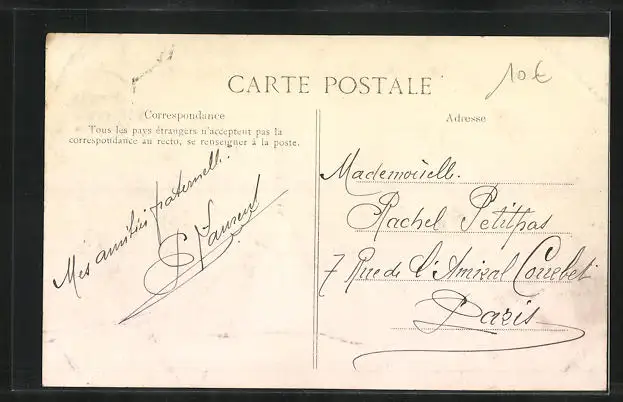 10€
CARTE POSTALE
Correspondance
Tous les pays étrangers n'acceptent pas la
correspondance au recto, se renseigner à la poste.
Mes amitiés fraternelle.
Laurent
Adresse
Mademoiselle.
Rachel Petitpas
7 Rue de l'Amiral Courbet
Paris